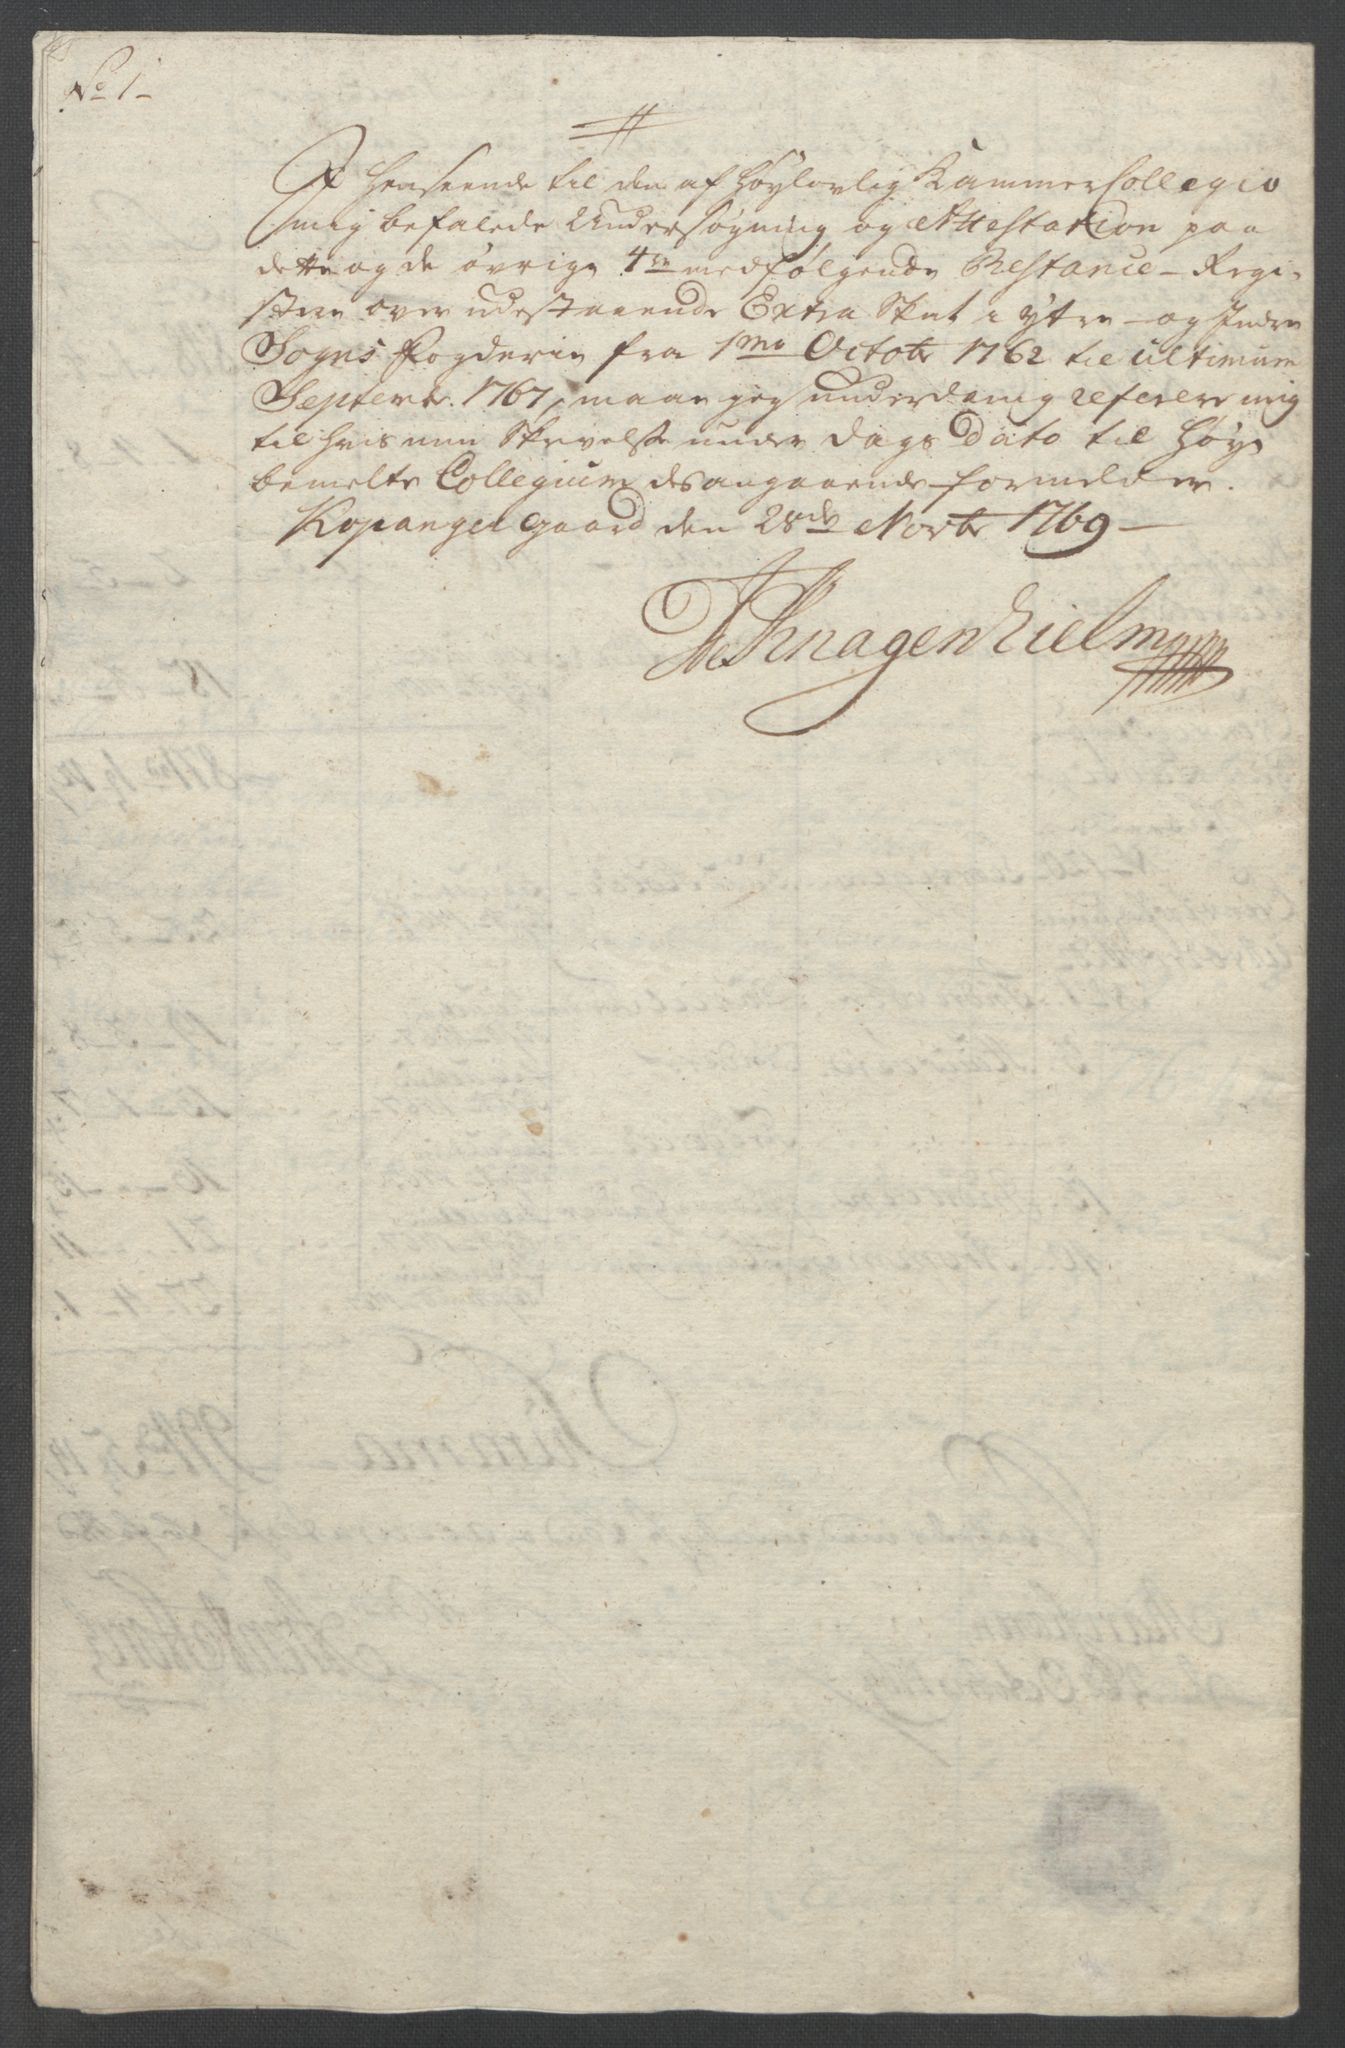 No 1
I Henseende til den af Høylovlig Kammer Collegio
mig befalede Undersøgning og Attestation paa
dette og de øvrige 4re medfølgende Restance-Regi-
stere over udestaaende Extra Skat i Ytre- og Indre
Sogns Fogderie fra 1mo Octobr 1762 til ultimum
Septembr. 1767, maae jeg underdanig referere mig
til hvis min Skrivelse under Dags Dato til Høy-
bemelte Collegium desangaaende formelder.
Kopanger gaard den 28de Novbr 1769
Knagenhielm